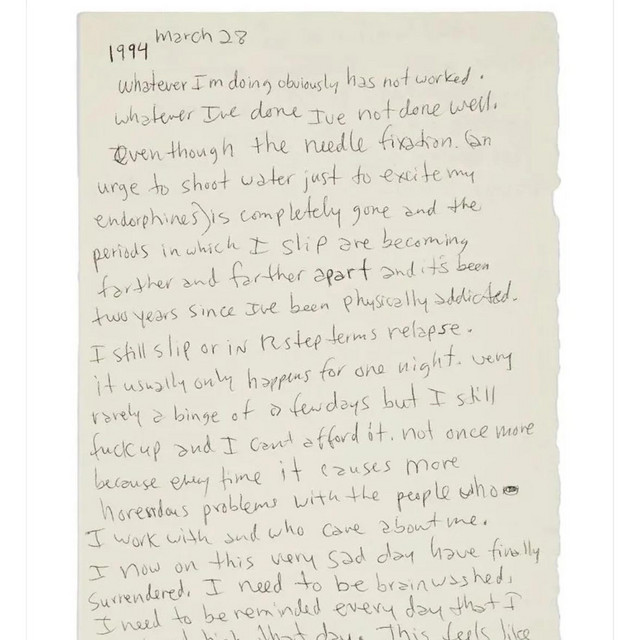 1994 March 28
whatever I'm doing obviously has not worked.
whatever I've done I've not done well.
Even though the needle fixation. (an
urge to shoot water just to excite my
endorphines) is completely gone and the
periods in which I slip are becoming
farther and farther apart and it's been
two years since I've been physically addicted.
I still slip or in 12 step terms relapse.
it usually only happens for one night. very
rarely a binge of a few days but I still
fuck up and I cant afford it. not once more
because every time it causes more
horendous problems with the people who
I work with and who care about me.
I now on this very sad day have finally
surrendered. I need to be brainwashed,
I need to be reminded every day that I
that day. This feels like